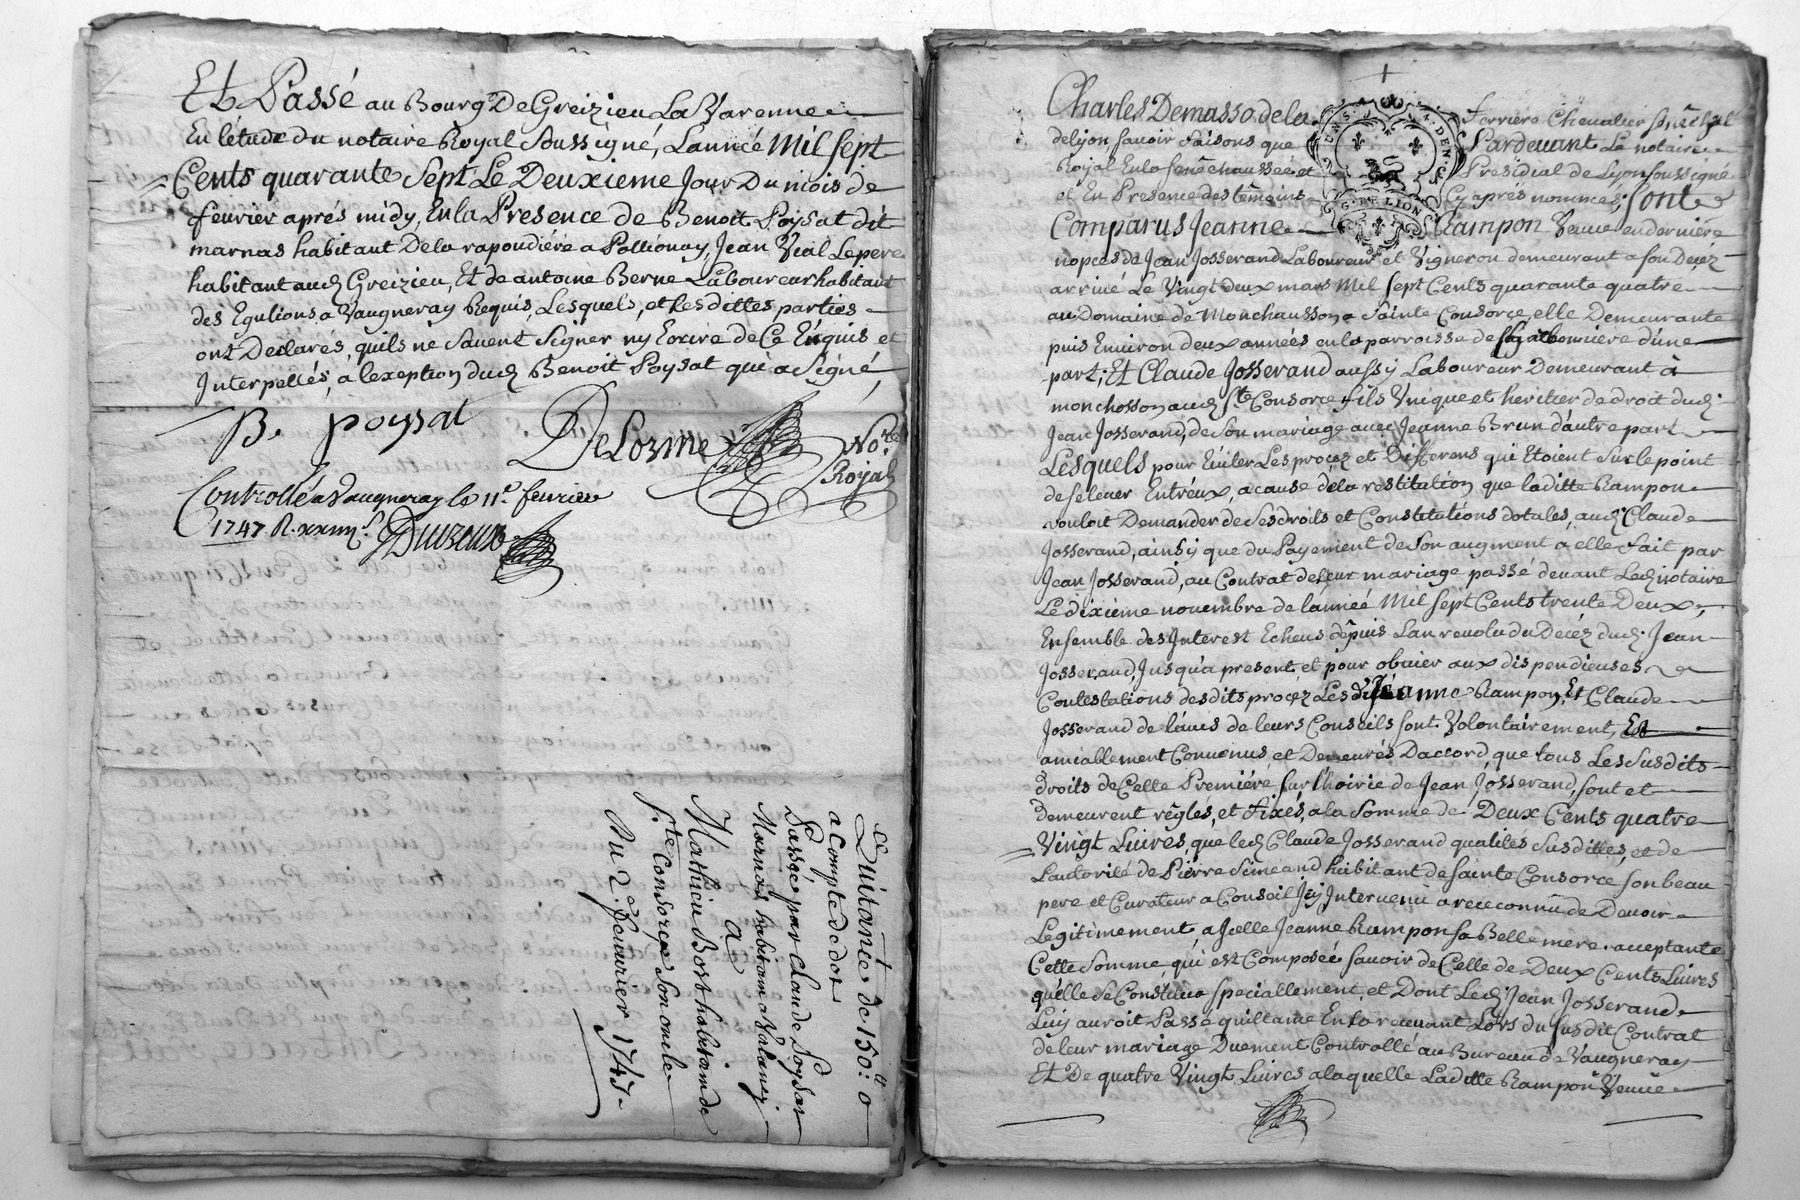 Et Passé au Bourg De Greizieu La Varenne
En létude du notaire Royal Soussigné, Lanneé Mil sept
Cents quarante Sept Le Deuxieme Jour Du mois de
fevrier aprés midy, En la Presence de Benoit Poysat dit
marnas habitant De la rapoudiére a Pollionay, Jean Vial Le pere
habitant aud Greizieu, Et de antoine Berne Laboureur habitant
des Egulions a Vaugneray Requis, Lesquels, et Lesdittes parties
ont Declarés, quils ne Savent Signer ny Ecrire de Ce Enquis et
Interpellés, a lexeption dud Benoit Poysat qui a Signé
B. poysat DeLorme No.re Royal
Controllé a Vaugneray le 11e. fevrier
1747 R.
Quitance de 150:
a Compte de dot
Passeé par Claude Poysat
Marnas habitant a Valency
A
Mathieu Bost habitant de
Ste Consorce Son oncle
Du 2e. fevrier 1747
Charles Demasso de la ferriére Chevalier Senéchal
de lyon savoir faisons que Pardevant Le notaire
Royal En la Senechausseé et Présidial de Lyon soussigné
et En Presence des témoins Cy aprés nommés, Sont
Comparus Jeanne Rampon Veuve en derniére
nopces de Jean Josserand Laboureur et Vigneron demeurant a son Decéz
arrivé Le Vingt deux mars Mil sept Cents quarante quatre
au Domaine de Monchausson a Sainte Consorce, elle Demeurante
puis Environ deux années en la parroisse de d'une
part; Et Claude Josserand aussy Laboureur Demeurant à
monchosson aud Ste Consorce fils Unique et héritier de droit dud.
Jean Josserand, de Son mariage avec Jeanne Brun d'autre part
Lesquels pour Eviter Les procez et Differens qui Etoient Sur le point
de se lever Entréux, a cause de la restitution que laditte Rampon
vouloit Demander de Ses droits et Constitutions dotales, aud. Claude
Josserand, ainsy que du Payement de Son augment a elle fait par
Jean Josserand, au Contrat de leur mariage passé devant Led notaire
Le dixiéme novembre de lanneé Mil Sept Cents trente Deux,
Ensemble des Interest Echeus depuis Lan revolu du Decéz dud. Jean
Josserand, Jusqu'a present, et pour obvier aux dispendieuses
Contestations desdits procez Les dits Jeanne Rampon, Et Claude
Josserand de l'avis de leurs Conseils sont Volontairement, Et
amiablement Convenus, et Demeurés D'accord, que tous Les Susdits
droits de Celle Premiére sur l'hoirie de Jean Josserand, sont et
demeurent régles, et fixés, a la Somme de Deux Cents quatre
Vingt Livres, que led. Claude Josserand qualités Susdittes, et de
L'autorité de Piérre Simeand habitant de Sainte Consorce son beau
pere et Curateur a Conseil Icy Intervenu a reconnû de Devoir
Legitimement, a Jcelle Jeanne Rampon Sa Belle mere acceptante
Cette Somme qui est Composeé savoir de Celle de Deux Cents Livres
qu'elle Se Constitua speciallement, et Dont Led. Jean Josserand
Luy auroit Passé quittance En la recevant Lors du susdit Contrat
de leur mariage Duement Controllé au Bureau de Vaugneray
Et De quatre Vingt Livres a laquelle Laditte Rampon Veuve